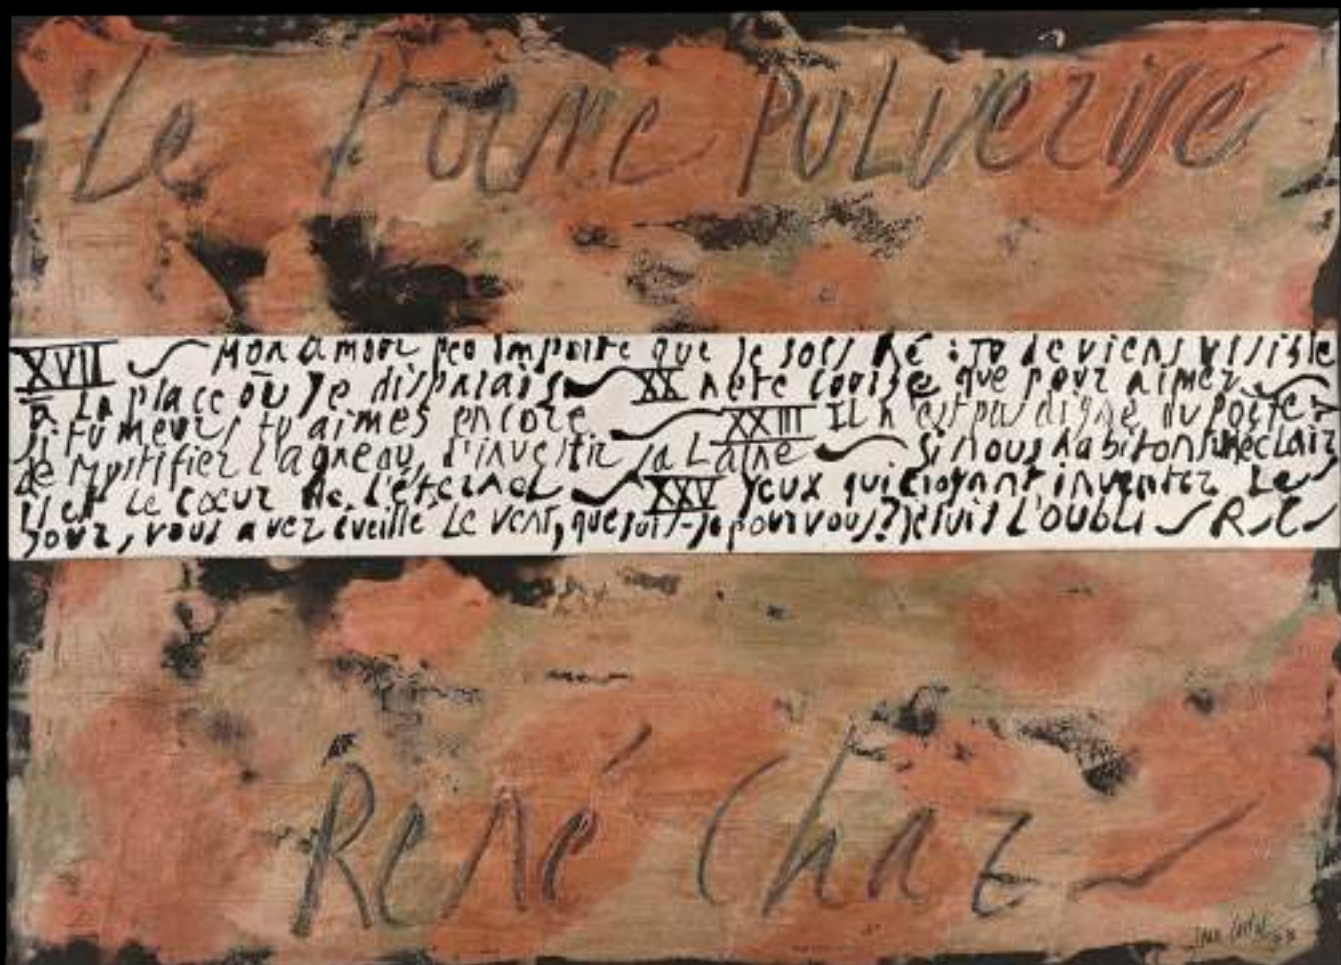 Le Poème PULVERISÉ
XVII Mon amour peu importe que je sois né : tu deviens visible
à la place où je disparais XX n'être courbé que pour aimer
si tu meurs, tu aimes encore XXIII Il n'est pas digne du poète
de mystifier l'agneau, d'investir sa laine Si nous habitons un éclair
il est le cœur de l'éternel XXV Yeux qui croyant inventer le
jour, vous avez éveillé le vent, que suis-je pour vous? je suis l'oubli R.C
René Char